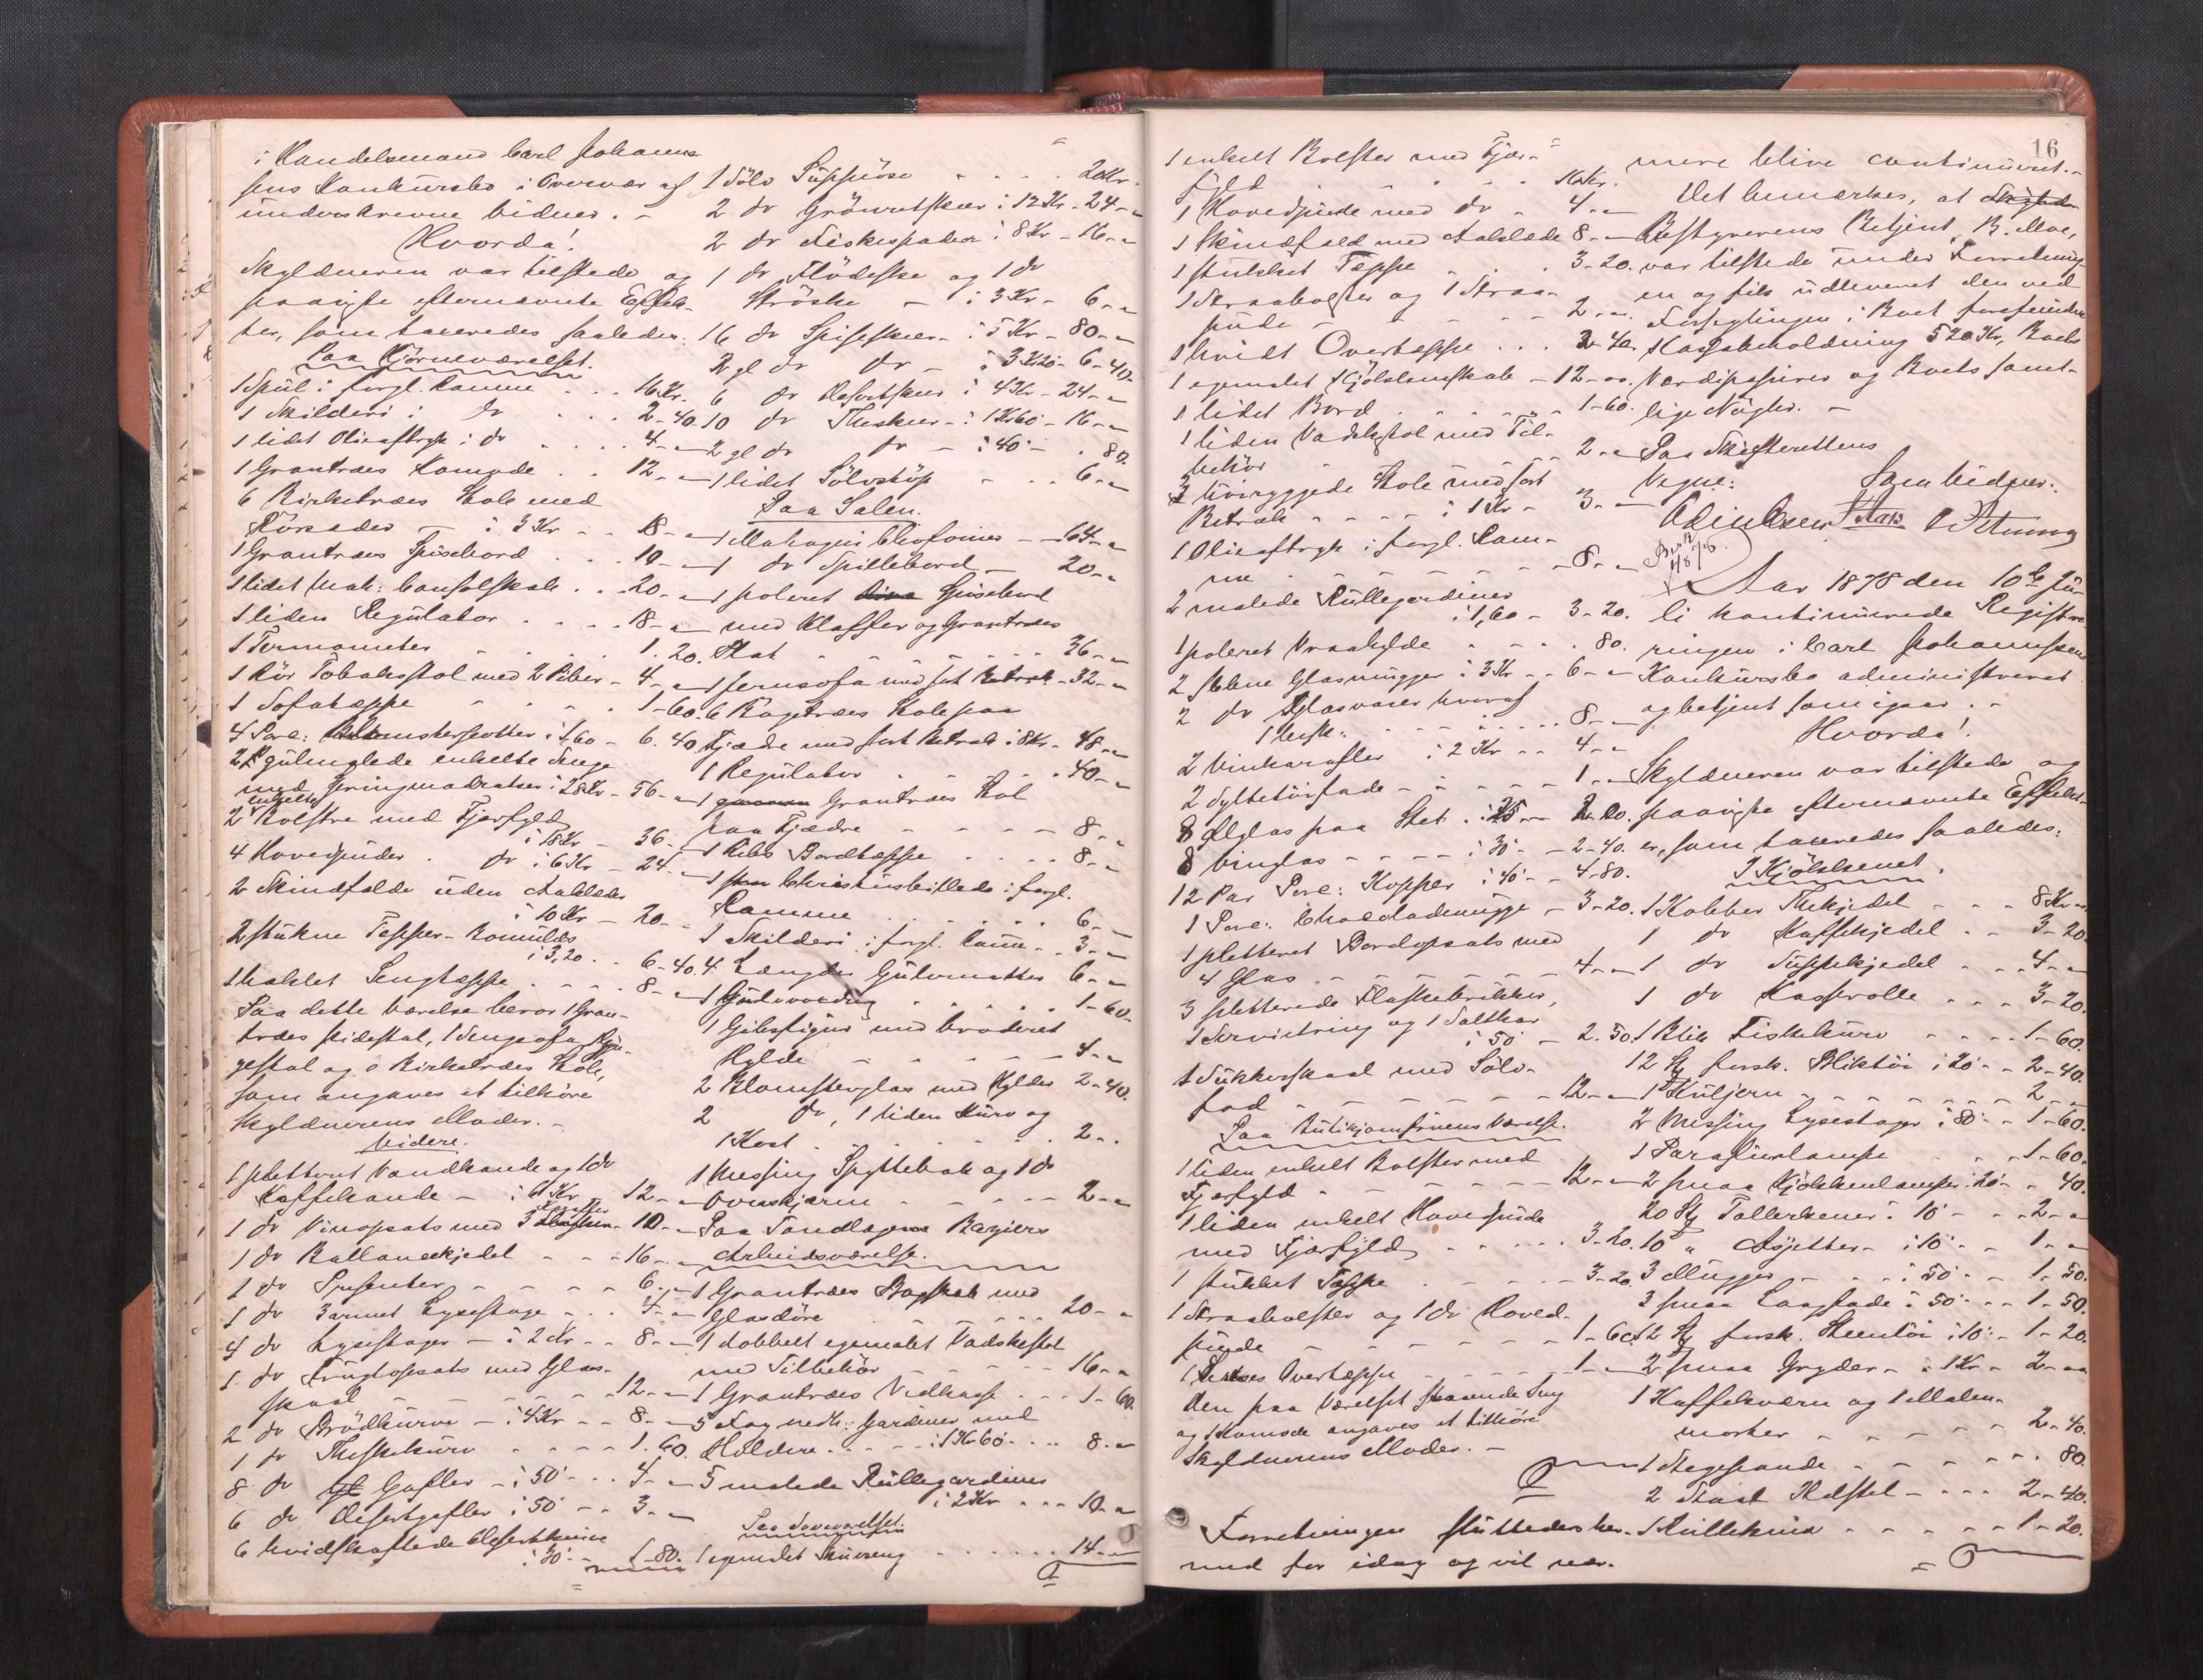 i Handelsmand Carl Johann-
sens Konkursbo i Overvær af
underskrevne Vidner. -
Hvorda!
Skyldneren var tilstede og
paaviste efternævnte Effek-
ter, som taxeredes saaledes:
Paa Hjørneværelset.
1 Speil i forgl. Ramme . . . 16 Kr.
1 Skilderi i do . . . 2-40.
1 lidet Olieaftryk i do . . . . 4- "
1 Grantræes Komode . . 12- "
6 Birketræes Stole med
Rørsæder - à 3 Kr - - 18- "
1 Grantræes Spisebord . . . 10- "
1 lidet Mah: Consolskab . . . 20- "
1 liden Regulator . . . . 18- "
1 Termometer . . . . 1. 20.
1 Rør Tobaksstol med 2 Piber - 4- "
1 Sofatæppe . . . . 1-60.
4 Porc: Blomsterpotter à 1,60 - 6. 40
2 gulmalede enkelte Senge
med Springmadratser à 28 Kr - 56- "
2 enkelte Bolstre med Fjærfyld
à 18 Kr - 36- "
4 Hovedpuder . do à 6 Kr - 24- "
2 Skindfelde uden Aaklæder
à 10 Kr - 20- "
2 stukne Tæpper - Bomulds
à 3,20 . . 6-40.
1 heklet Sengtæppe . . . . 8- "
Paa dette Værelse beror 1 Gran-
træes Pidestal, 1 Sengsofa, Gyn-
gestol og 6 Birketræes Stole,
som angaves at tilhøre
Skyldnerens Moder. -
Videre.
1 pletteret Vandkande og 1 do
Kaffekande - à 6 Kr 12- "
1 do Vinopsats med 3 Karafler - 10- "
1 do Ballancekjedel - - - 16- "
1 do Presenter - - - - - 6- "
1 do 3 armet Lysestage - . . 4- "
4 do Lysestager - à 2 Kr - - 8- "
1 do Frugtopsats med Glas-
skaal - - - - - - - 12- "
2 do Brødkurve - à 4 Kr - - 8- "
1 do Theskekurv - - - - 1. 60.
8 do Gafler - à 50 - . . 4- "
6 do Desertgafler à 50 - - 3- "
6 hvidskaftede Desertknive
à 30 - - 1-80.
1 Sølv Suppeøse - - - - 20 Kr.
2 do Grønretskeer à 12 Kr - 24- "
2 do Fiskespader à 8 Kr - 16- "
1 do Flødeske og 1 do
Strøske - à 3 Kr - 6- "
16 do Spiseskeer - à 5 Kr - 80- "
2 gl do do - à 3 K 20 - 6-40.
6 do Desertskeer à 4 Kr - 24- "
10 do Theskeer - à 1 K 60 - 16- "
2 gl do do - à 40 - . 80.
1 lidet Sølvstøp - - - 6- "
Paa Salen.
1 Mahogni Chiffonier - - 64- "
1 do Spillebord - 20- "
1 poleret Spisebord
med Klaffer og Grantræes
Plat - - - - - - 36- "
1 Jernsofa med sort Betræk - 32- "
6 Bøgetræes Stole paa
Fjædre med sort Betræk à 8 Kr - 48- "
1 Regulator . . . . . 40- "
1 Grantræes Stol
paa Fjædre - - - - 8- "
1 Ribs Bordtæppe . . . . 8- "
1 Christusbillede i forgl.
Ramme . . . . . 6- "
1 Skilderi i forgl. Ramme - 3- "
4 Længder Gulvmatter 6- "
1 Gulvvoxdug . . . . 1-60.
1 Gibsfigur med broderet
Hylde - - - - - 4- "
2 Blomsterglas med Hylder 2-40.
2 do, 1 liden Kurv og
1 Kost . . . . . . 2- "
1 Messing Spyttebak og 1 do
Ovnsskjærm - - - - - 2- "
Paa Tandlæge Bagiers
Arbeidsværelse.
1 Grantræes Bogskab med
Glasdøre . . . . . . 20- "
1 dobbelt egemalet Vadskestol
med Tilbehør - - - - - 16- "
1 Grantræes Vedkasse - - - 1-60.
5 Fag nedh: Gardiner med
Holdere - . . . à 1 K 60 . . . 8- "
5 malede Rullegardiner
à 2 Kr . . . 10- "
Paa Soveværelset.
1 egemalet Skuvseng . . . . . . 14- "
16
1 enkelt Bolster med Fjær-
fyld . . . . . . 16 Kr.
1 Hovedpude med do - 4- "
1 Skindfeld med Aaklæde 8- "
1 stukket Tæppe . . . 3-20.
1 Straabolster og 1 Straa-
pude - - - - - 2- "
1 hvidt Overtæppe . . . 2-40.
1 egemalet Kjøkkenskab - 12- "
1 lidet Bord . . . . . 1-60.
1 liden Vadskestol med Til-
behør . . . . . . . 2- "
3 høiryggede Stole med sort
Betræk - - - - à 1 Kr - 3- "
1 Olieaftryk i forgl. Ram-
me - - - - - - - 8- "
2 malede Rullegardiner
à 1,60 - 3-20.
1 poleret Vraahylde . . . . 80.
2 slebne Glasmugger à 3 Kr - - 6- "
2 do Glasvaser hvoraf
1 besk: . . . . . . . 8- "
2 Vinkarafler à 2 Kr - - 4- "
2 Syltetøifade - - - - - 1- "
8 Ølglas paa Stet . à 25 - - 2-00.
8 Vinglas - - - - à 30 - - 2-40.
12 Par Porc: Kopper à 40 - - 4-80.
1 Porc: Chocolademugge - 3-20.
1 pletteret Bordopsats med
4 Glas - - - - - - - 4- "
3 pletterede Flaskebrikker,
1 Servietring og 1 Saltkar
à 50 - 2. 50.
1 Sukkerskaal med Sølv-
fad - - - - - - - 12- "
Paa Butikjomfruens Værelse.
1 liden enkelt Bolster med
Fjærfyld - - - - - - 12- "
1 liden enkelt Hovedpude
med Fjærfyld - - - - 3-20.
1 stukket Tæppe . . . . . . 3-20.
1 Straabolster og 1 do Hoved-
pude - - - - - - - 1-60.
1 Overtæppe - - - - - - 1- "
Den paa Værelset staaende Seng
og 1 Komode angaves at tilhøre
Skyldnerens Moder. -
Forretningen sluttedes her-
med for idag og vil nær-
mere blive continueret. -
Det bemærkes, at
Bestyrerens Betjent, B. Moe,
var tilstede under Forretning-
en og fik udleveret den ved
Forseglingen i Boet forefundne
Kassabeholdning 520 Kr, Boets
Værdipapirer og Boets samt-
lige Nøgler. -
Paa Skifterettens
Vegne: Som Vidner:
Aar 1878 den 10de Ju-
li kontinuerede Registre-
ringen i Carl Johannsens
Konkursbo administreret
og betjent som igaar. -
Hvorda!
Skyldneren var tilstede og
paaviste efternævnte Effekt-
er, som taxeredes saaledes:
I Kjøkkenet.
1 Kobber Thekjedel - - - 8 Kr "
1 do Kaffekjedel . . 3-20.
1 do Suppekjedel . . . 4- "
1 do Kasserolle . . . 3-20.
1 Blik Fiskekurv - - - - 1-60.
12 St forsk. Bliktøi à 20 - - 2-40.
1 Huljern - - - - - - 2- "
2 Messing Lysestager à 80 - - 1-60.
1 Parafinlampe - - - 1-60.
2 smaa Kjøkkenlamper à 20 - - 40.
20 St Tallerkener à 10 - - - 2- "
10 " Asjetter - à 10 - - 1- "
3 Mugger - - - - à 50 - - 1-50.
3 smaa Laagfade à 50 - - - 1-50.
12 St forsk. Steentøi à 10 - 1-20.
2 smaa Gryder - à 1 Kr - 2- "
1 Kaffekværn og 1 Malm-
morter - - - - - 2-40.
1 Stegepande - - - - - - 80.
2 Staal Ildstel - - - - 2-40.
1 Rullekniv - - - - - - 1-20.